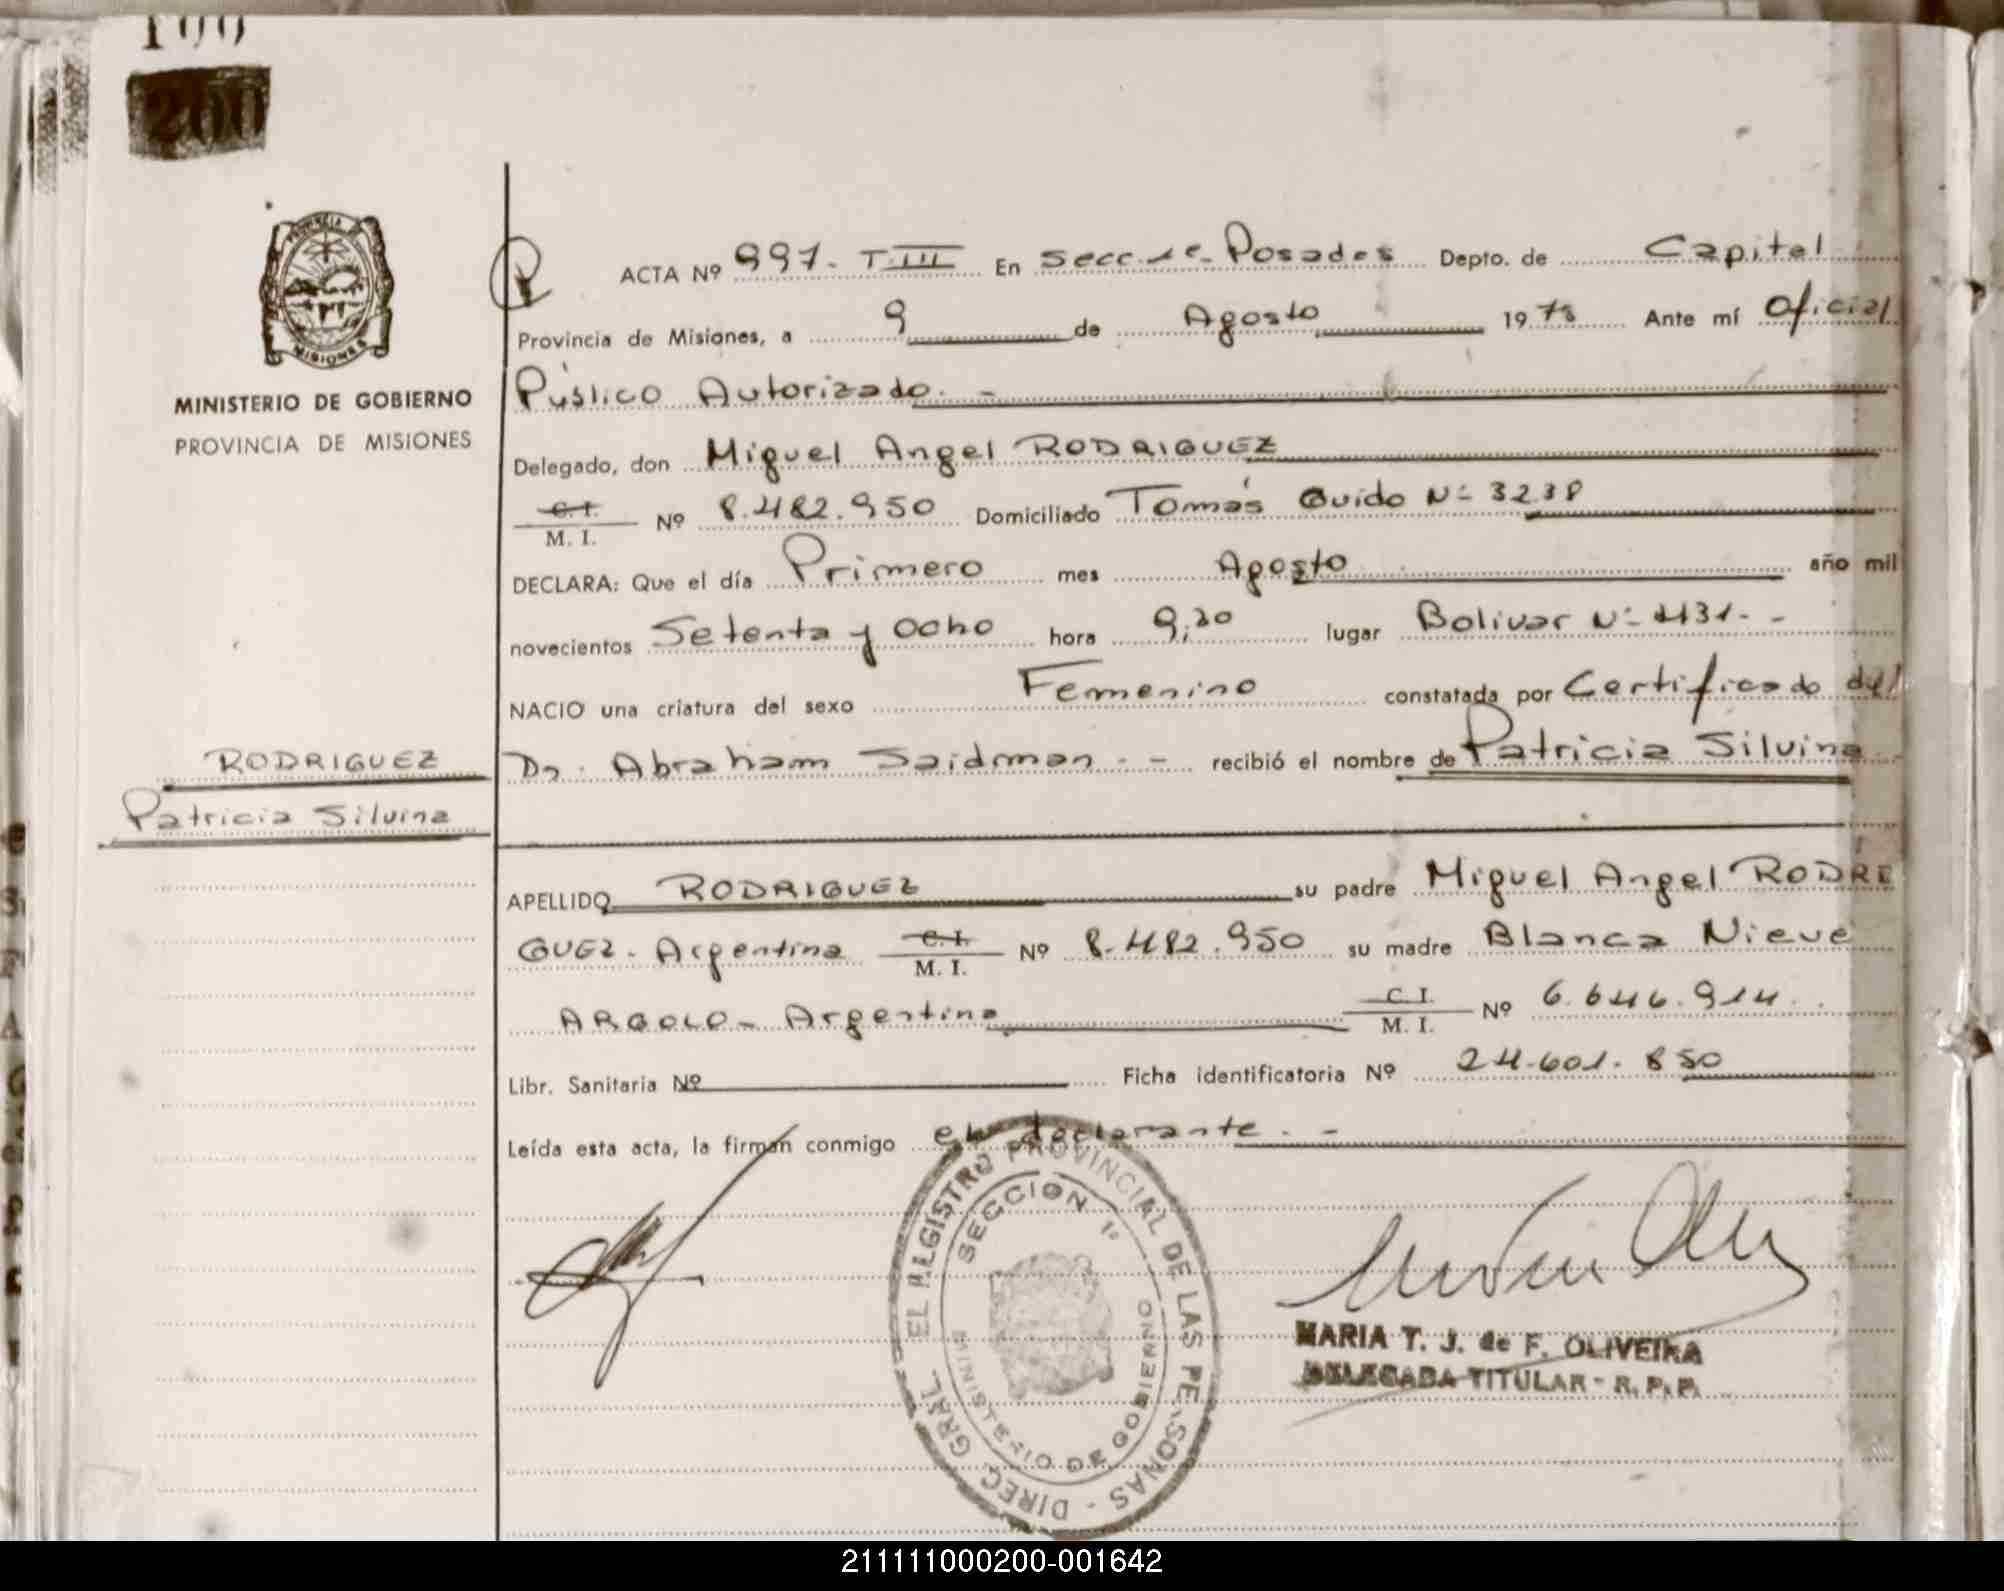 100
200
PROVINCIA DE
MISIONES
MINISTERIO DE GOBIERNO
PROVINCIA DE MISIONES
RODRIGUEZ
Patricia Silvina
ACTA Nº 997- T III En Secc. 1e- Posadas Depto. de Capital
Provincia de Misiones, a 9 de Agosto 1978 Ante mí Oficial
Público Autorizado. -
Delegado, don Miguel Angel RODRIGUEZ
C. I. / M. I. Nº 8.482.950 Domiciliado Tomás Guido Nº 3238
DECLARA: Que el día Primero mes Agosto año mil
novecientos Setenta y ocho hora 9,20 lugar Bolivar Nº 2131- -
NACIO una criatura del sexo Femenino constatada por Certificado del
Dr. Abraham Saidman - - recibió el nombre de Patricia Silvina
APELLIDO RODRIGUEZ su padre Miguel Angel RODRI
GUEZ- Argentina C. I. / M. I. Nº 8.482.950 su madre Blanca Nieve
ARGOLO- Argentina C. I. / M. I. Nº 6.646.914.
Libr. Sanitaria Nº Ficha identificatoria Nº 24.601.850
Leída esta acta, la firman conmigo el declarante. -
DIREC. GRAL. DEL REGISTRO PROVINCIAL DE LAS PERSONAS -
SECCION 1º
MINISTERIO DE GOBIERNO
MARIA T. J. de F. OLIVEIRA
DELEGADA TITULAR - R. P. P.
211111000200-001642